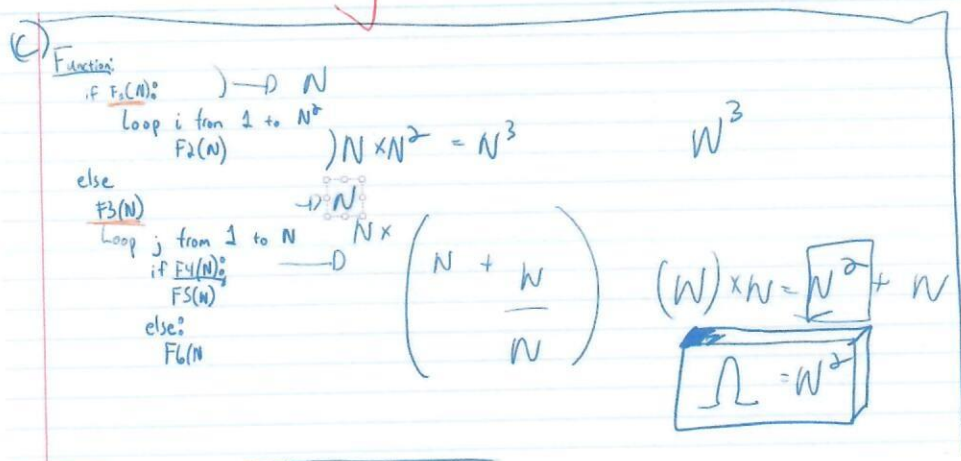 C)
Function:
if F1(N): ) → N
Loop i from 1 to N²
F2(N) ) N × N² = N³ N³
else
F3(N) → N
Loop j from 1 to N N × ( N + N / N )
if F4(N): →
F5(N)
else:
F6(N
(N) × N = N² + N
Ω = N²